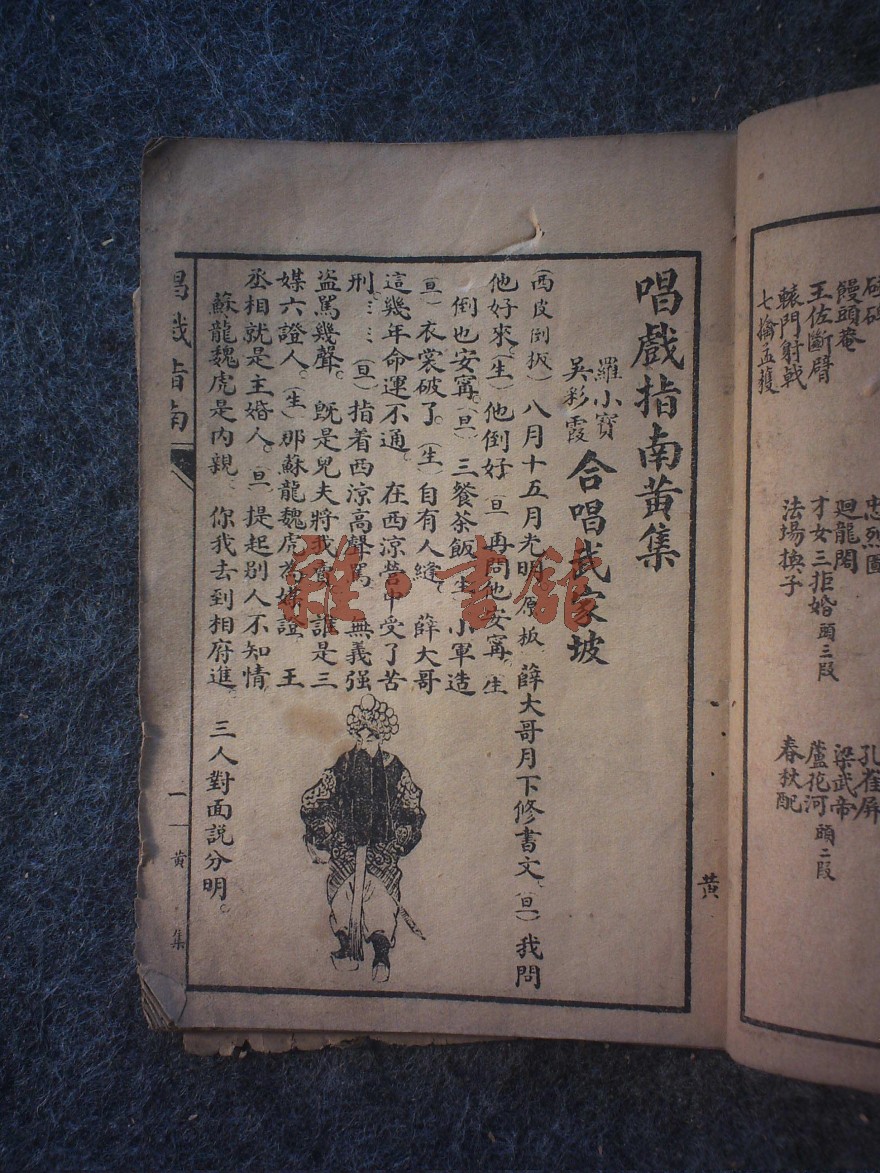 饅頭菴
王佐斷臂
轅門射戟
七擒孟獲
忠烈圖
廻龍閣
才女三拒婚 頭三段
法場換子
孔雀屏
梁武帝
蘆花河 頭二段
春秋配
黃
唱戲指南黃集
羅小寶
吳彩霞
合唱武家坡
(西皮倒扳)八月十五月光明 原扳 薛大哥月下修書文。(旦)我問
他好來。(生)他倒好 旦 再問他安甯。生
倒也安甯。(旦)三餐茶飯 生 小軍造
(旦)衣裳破了。(生)自有人縫。 薛大哥
這幾年命運不通。 在西涼營中受了苦
刑。ミミ(旦)指着西涼高聲罵 無義强
盜罵幾聲。 旣是兒夫將我賣 誰是三
媒六證人。(生)那蘇龍魏虎為媒證。 王
丞相就是主婚人。旦 提起別人不知情
蘇龍魏虎是內親 你我去到相府進。 三人對面說分明。
唱戲指南
一
黃集
雜·書館